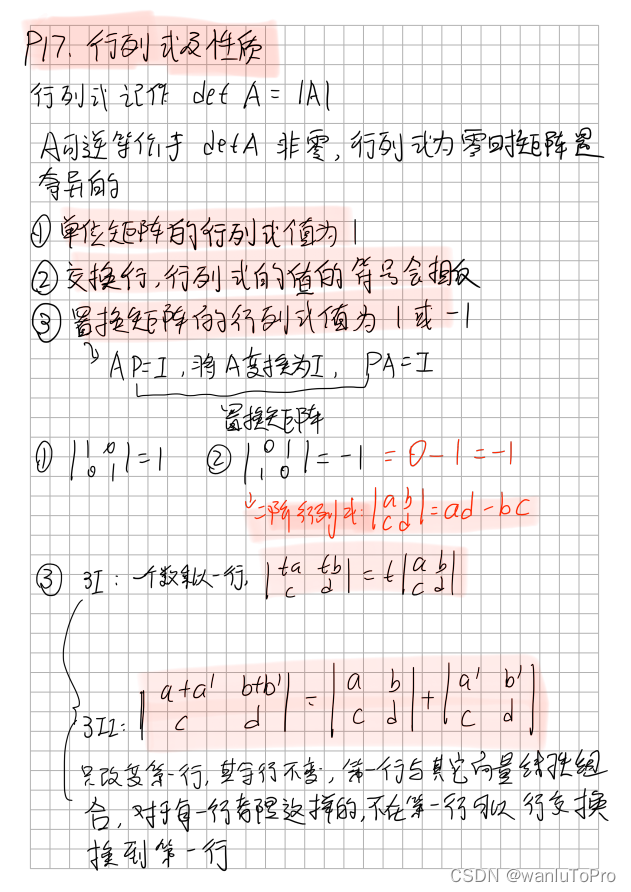 P17. 行列式及性质
行列式记作 det A = |A|
A可逆等价于 det A 非零, 行列式为零时矩阵是
奇异的
① 单位矩阵的行列式值为1
② 交换行, 行列式的值的符号会相反
③ 置换矩阵的行列式值为 1 或 -1
↳ AP=I, 将A变换为I, PA=I
置换矩阵
① |1 0; 0 1| = 1 ② |0 1; 1 0| = -1 = 0-1 = -1
↳ 二阶行列式: |a b; c d| = ad-bc
③ 3I: 一个数乘以一行, |ta tb; c d| = t|a b; c d|
3II: |a+a' b+b'; c d| = |a b; c d| + |a' b'; c d|
只改变第一行, 其余行不变, 第一行与其它向量线性组
合, 对于每一行都是这样的, 不在第一行可以 行交换
换到第一行
CSDN @wanluToPro